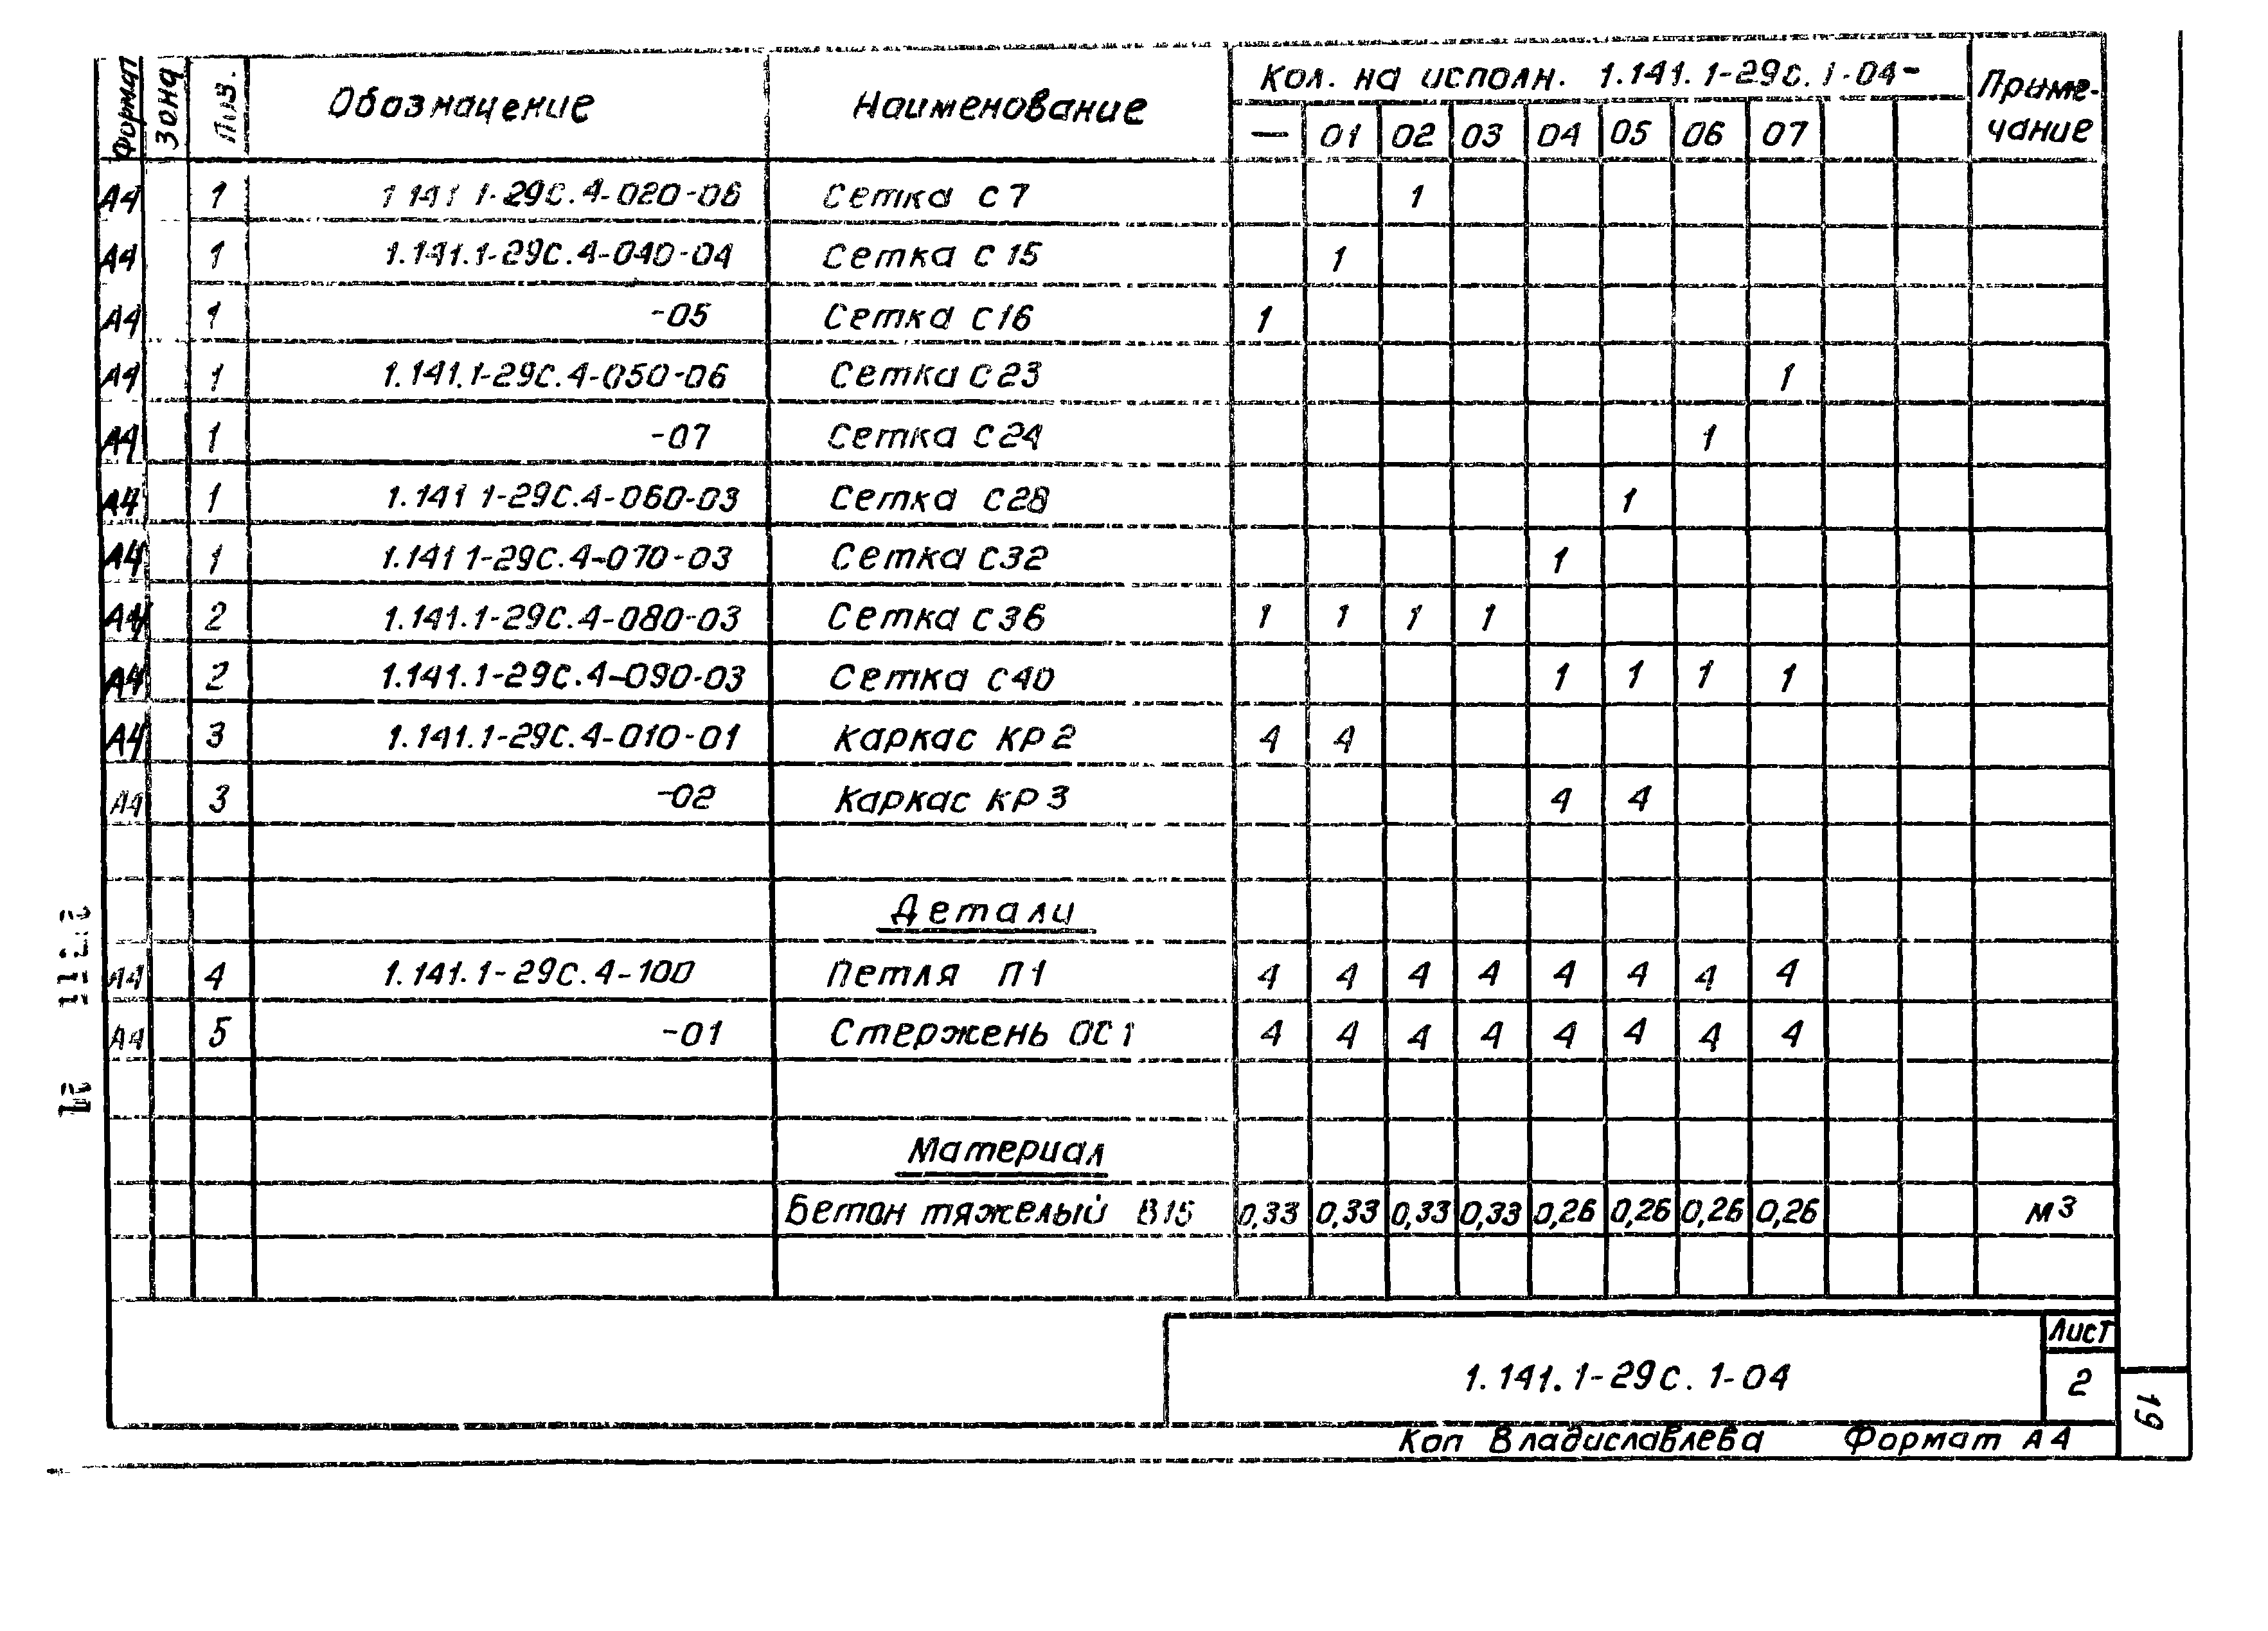 Формат Зона Поз. Обозначение Наименование Кол. на исполн. 1.141.1-29с.1-04- Примечание
— 01 02 03 04 05 06 07
А4 1 1 141 1-29с.4-020-06 Сетка С7 1
А4 1 1.141.1-29с.4-040-04 Сетка С15 1
А4 1 -05 Сетка С16 1
А4 1 1.141.1-29с.4-050-06 Сетка С23 1
А4 1 -07 Сетка С24 1
А4 1 1.141 1-29с.4-060-03 Сетка С28 1
А4 1 1.141 1-29с.4-070-03 Сетка С32 1
А4 2 1.141.1-29с.4-080-03 Сетка С36 1 1 1 1
А4 2 1.141.1-29с.4-090-03 Сетка С40 1 1 1 1
А4 3 1.141.1-29с.4-010-01 Каркас КР2 4 4
А4 3 -02 Каркас КР3 4 4
Детали
А4 4 1.141.1-29с.4-100 Петля П1 4 4 4 4 4 4 4 4
А4 5 -01 Стержень ОС1 4 4 4 4 4 4 4 4
Материал
Бетон тяжелый В15 0,33 0,33 0,33 0,33 0,26 0,26 0,26 0,26 м3
1.141.1-29с.1-04
Лист
2
19
Коп Владиславлева Формат А4